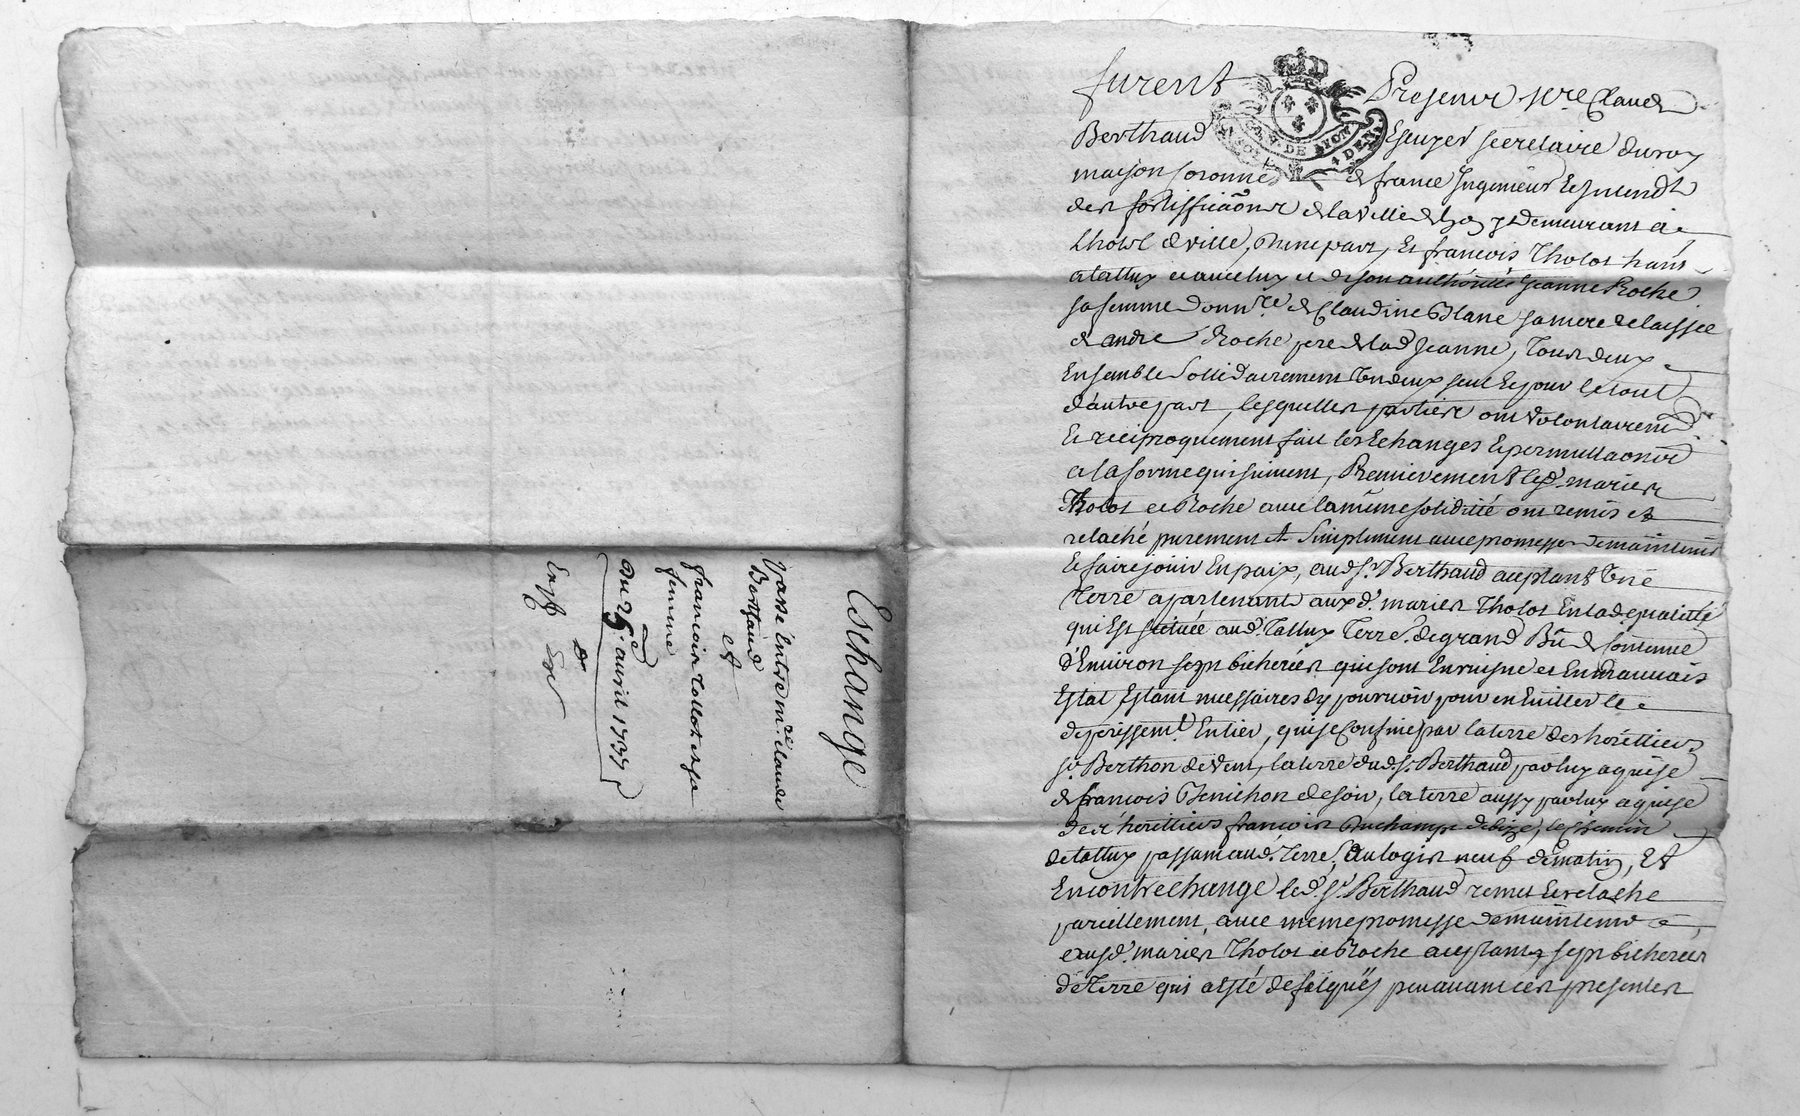 furent Presents Mre Claude
Berthaud Escuyer secretaire du roy
maison coronne de france Ingenieur
des fortifficaons de la ville de Lyon y demeurant a
Lhotel de ville, d'une part, Et francois Tholot hant
a tallux et avec luy et de son authorité Jeanne Roche
sa femme donnre de Claudine Blanc sa mere relaissee
de andré Roche pere de lad Jeanne, Tous deux
Ensemble sollidairement l'un deux seul Et pour le tout
d'autre part, lesquelles parties ont volontairemt
Et reciproquement fait les Echanges Et permuttaons
a la forme qui suivent, Premierement lesd. mariés
Tholot et Roche avec la même soliditté ont remis et
relaché purement Et Simplement avec promesse de maintenir
Et faire jouir En paix, aud. Sr. Berthaud acceptant Une
Terre apartenants auxd. mariés Tholot En lad. qualitté
qui Est scituée aud. Tallux Terre de grand Bü de Contenue
d'Environ sept bicherées qui sont En ruisne et En Mauvais
Estat Estant necessaires d'y pourvoir pour en Eviter le
deperissemt. Entier, qui se Confine par la terre des heretiers
Sr. Berthon de vent, la terre dud. Sr. Berthaud par luy aquise
de francois Benichon de soir, la terre aussy par luy aquise
des heretiers francois Duchamp de bize, le chemin
de tallux passant aud. Terre, au logis neuf de matin, Et
En contrechange led. Sr. Berthaud remet Et relache
pareillement, avec meme promesse de maintenir
auxd. mariés Tholot et Roche acceptants, sept bicherées
de Terre qui a esté de pequis peu avant ces presentes
Eschange
passé Entre mre. claude
Berthaud
et
francois tollot et sa
femme
du 25e. avril 1737